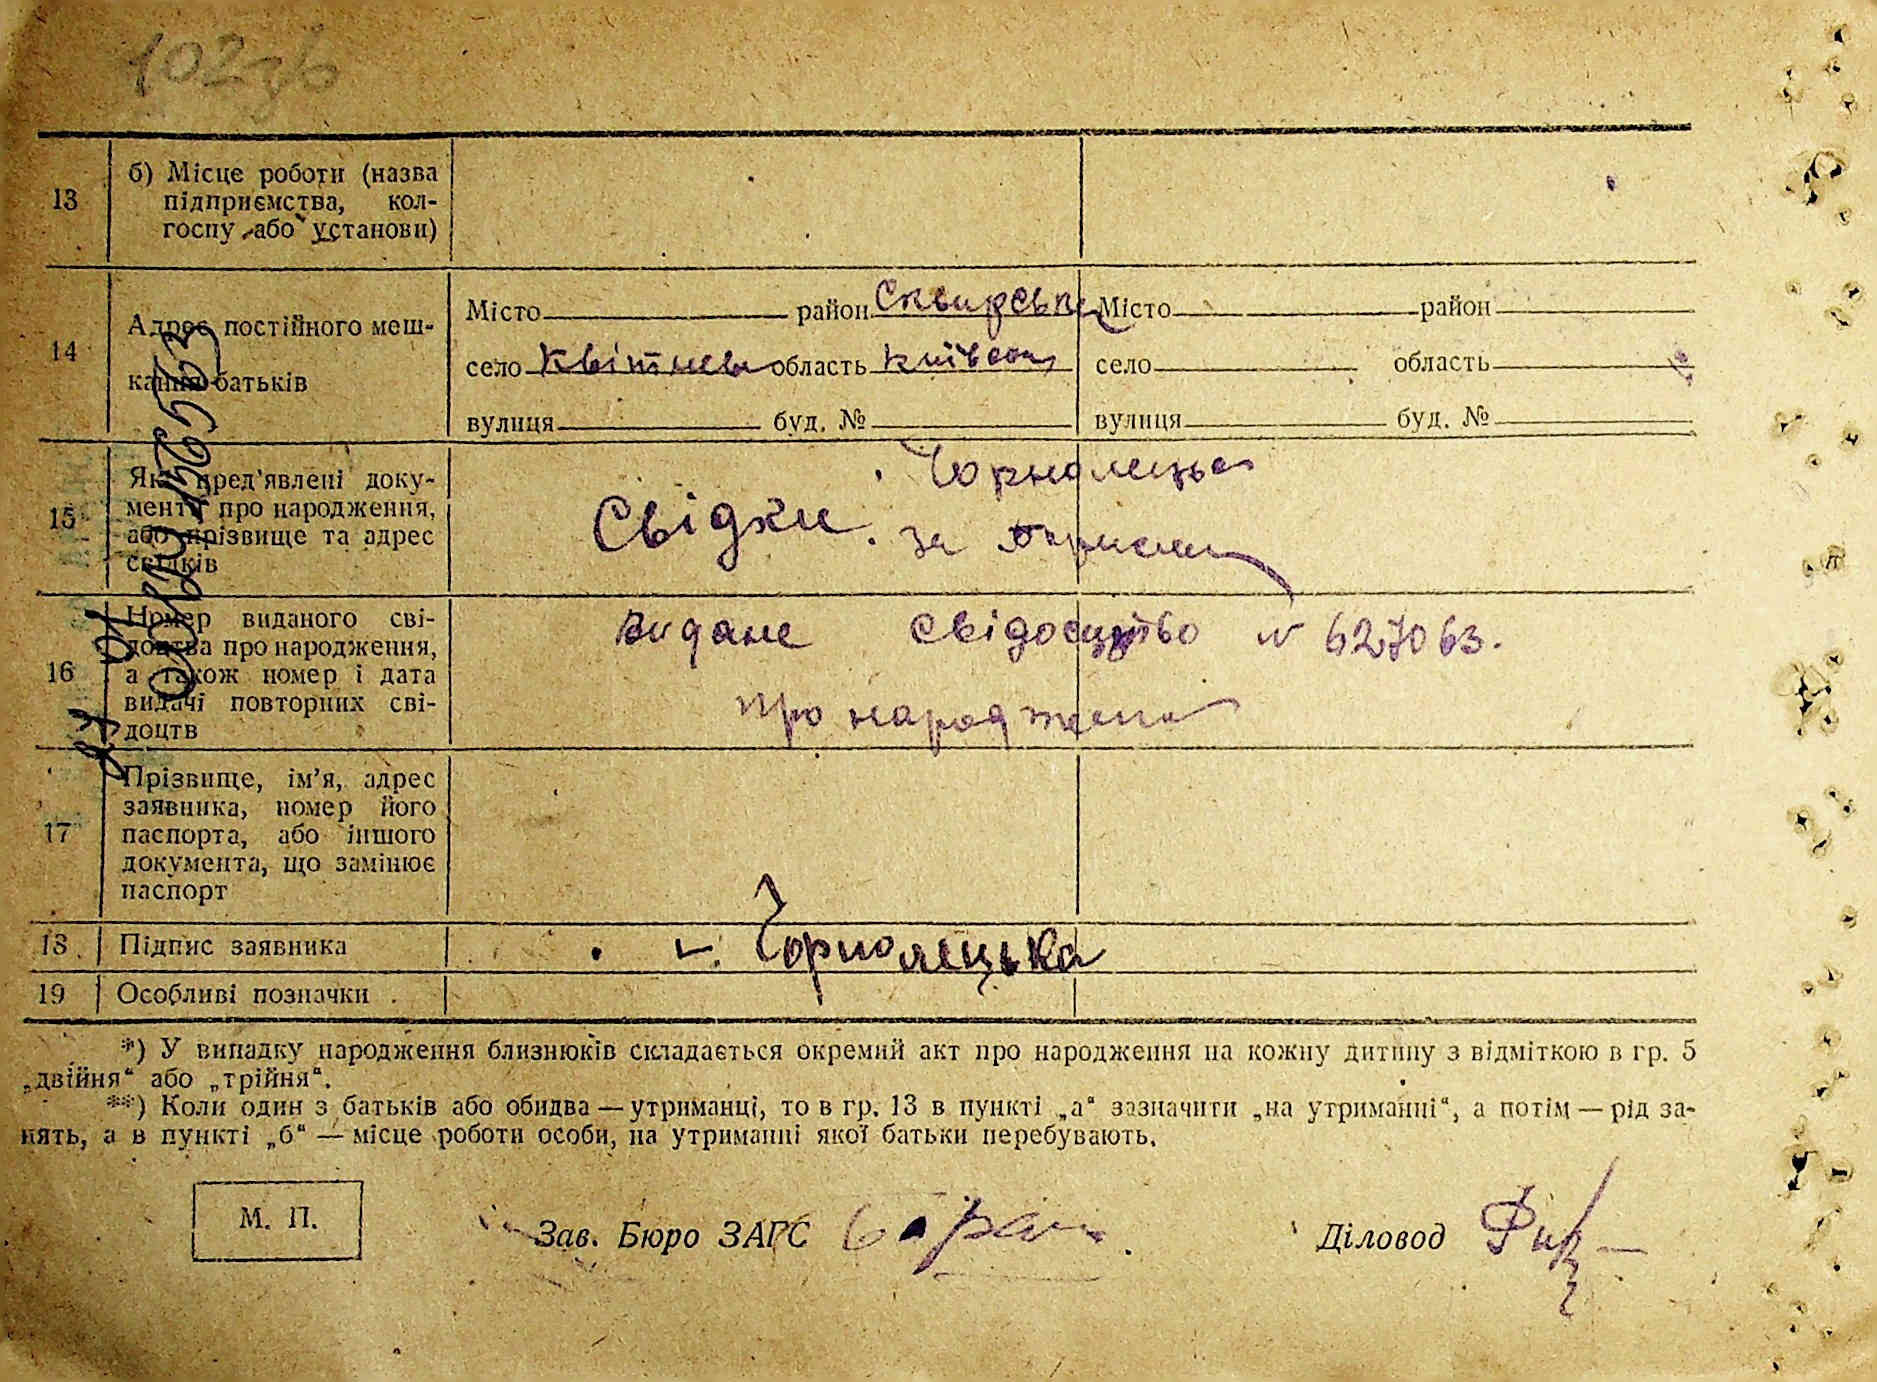 102зв
13
б) Місце роботи (назва
підприємства, кол-
госпу або установи)
14
Адрес постійного меш-
кання батьків
Місто район Сквирськ
село Квітневе область Київськ
вулиця буд. №
Місто район
село область
вулиця буд. №
15
Які пред'явлені доку-
менти про народження,
або прізвище та адрес
свідків
Чорнолецька
Свідки. за
16
Номер виданого сві-
доцтва про народження,
а також номер і дата
видачі повторних сві-
доцтв
Видане свідоцтво № 627063.
про народжена
17
Прізвище, ім'я, адрес
заявника, номер його
паспорта, або іншого
документа, що замінює
паспорт
18
Підпис заявника
Чорнолецька
19
Особливі позначки
*) У випадку народження близнюків складається окремий акт про народження на кожну дитину з відміткою в гр. 5
„двійня“ або „трійня“.
**) Коли один з батьків або обидва — утриманці, то в гр. 13 в пункті „а“ зазначити „на утриманні“, а потім — рід за-
нять, а в пункті „б“ — місце роботи особи, на утриманні якої батьки перебувають.
М. П.
Зав. Бюро ЗАГС
Діловод